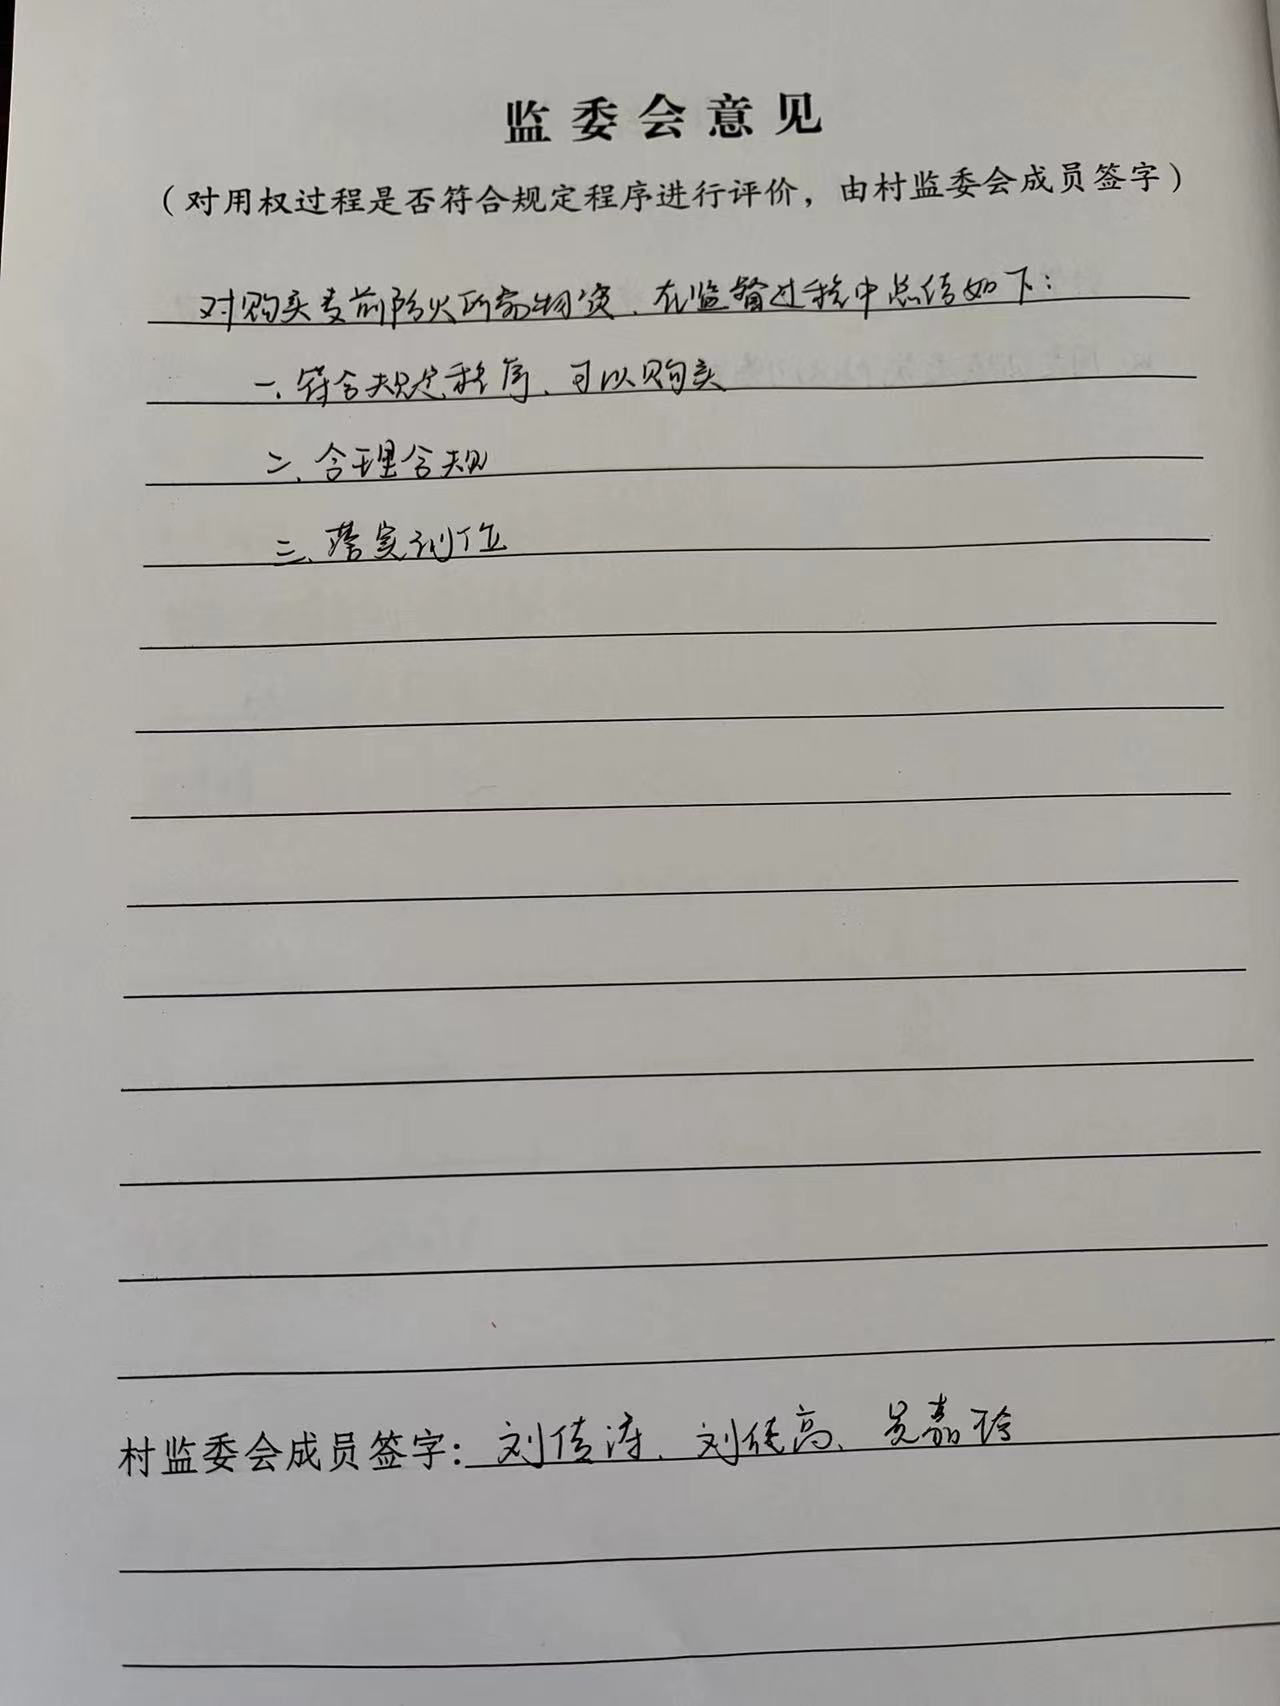 监委会意见
（对用权过程是否符合规定程序进行评价，由村监委会成员签字）
对购买麦前防火所需物资、在监督过程中总结如下：
一、符合规定程序、可以购买
二、合理合规
三、落实到位
村监委会成员签字：刘传涛、刘传高、吴嘉玲